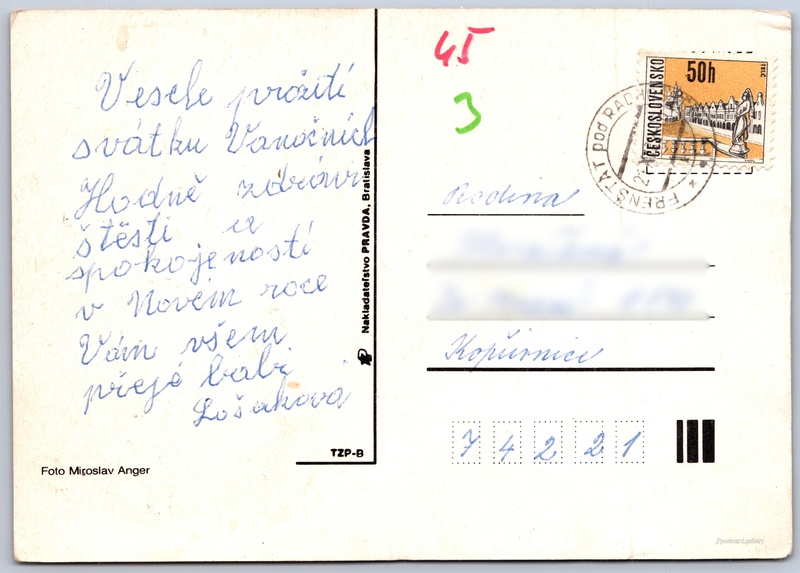 Vesele prožití
svátku Vanočních
Hodně zdraví
štěstí
spokojeností
v Novém roce
Vám všem
přeje babi
Lošakova
Foto Miroslav Anger
TZP-B
Nakladatelstvo PRAVDA, Bratislava
45
3
ČESKOSLOVENSKO
50h
TELČ
FRENŠTÁT pod RADH
Rodina
Kopřivnice
74221